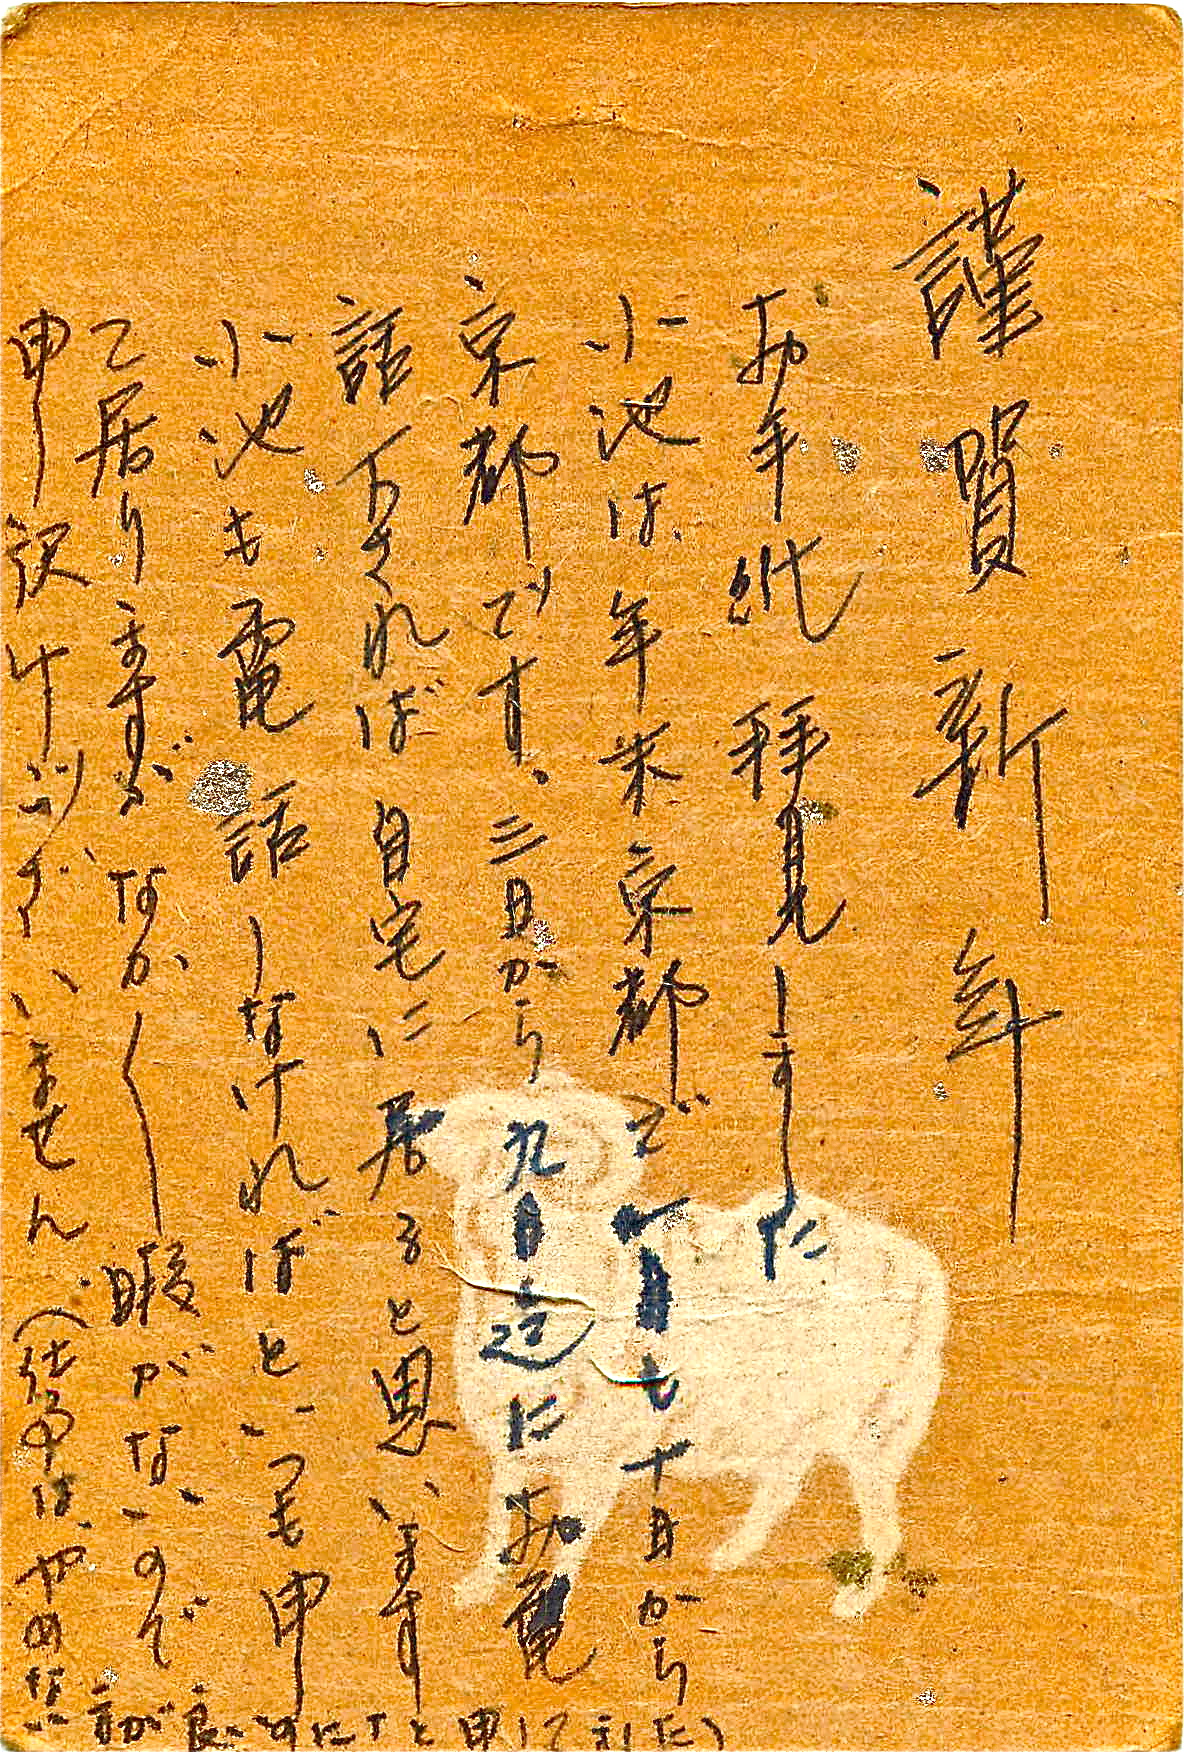 謹賀新年
お年玳拝見しました
小池は年末京都で一月も十日から
京都です、三日から九日迄にお電
話下されば自宅に居ると思います
小池も電話しなければといつも申
して居りますがなか〱暇がないので
申訳けございません（仕事はやめない
方が良いのにナと申して利た）